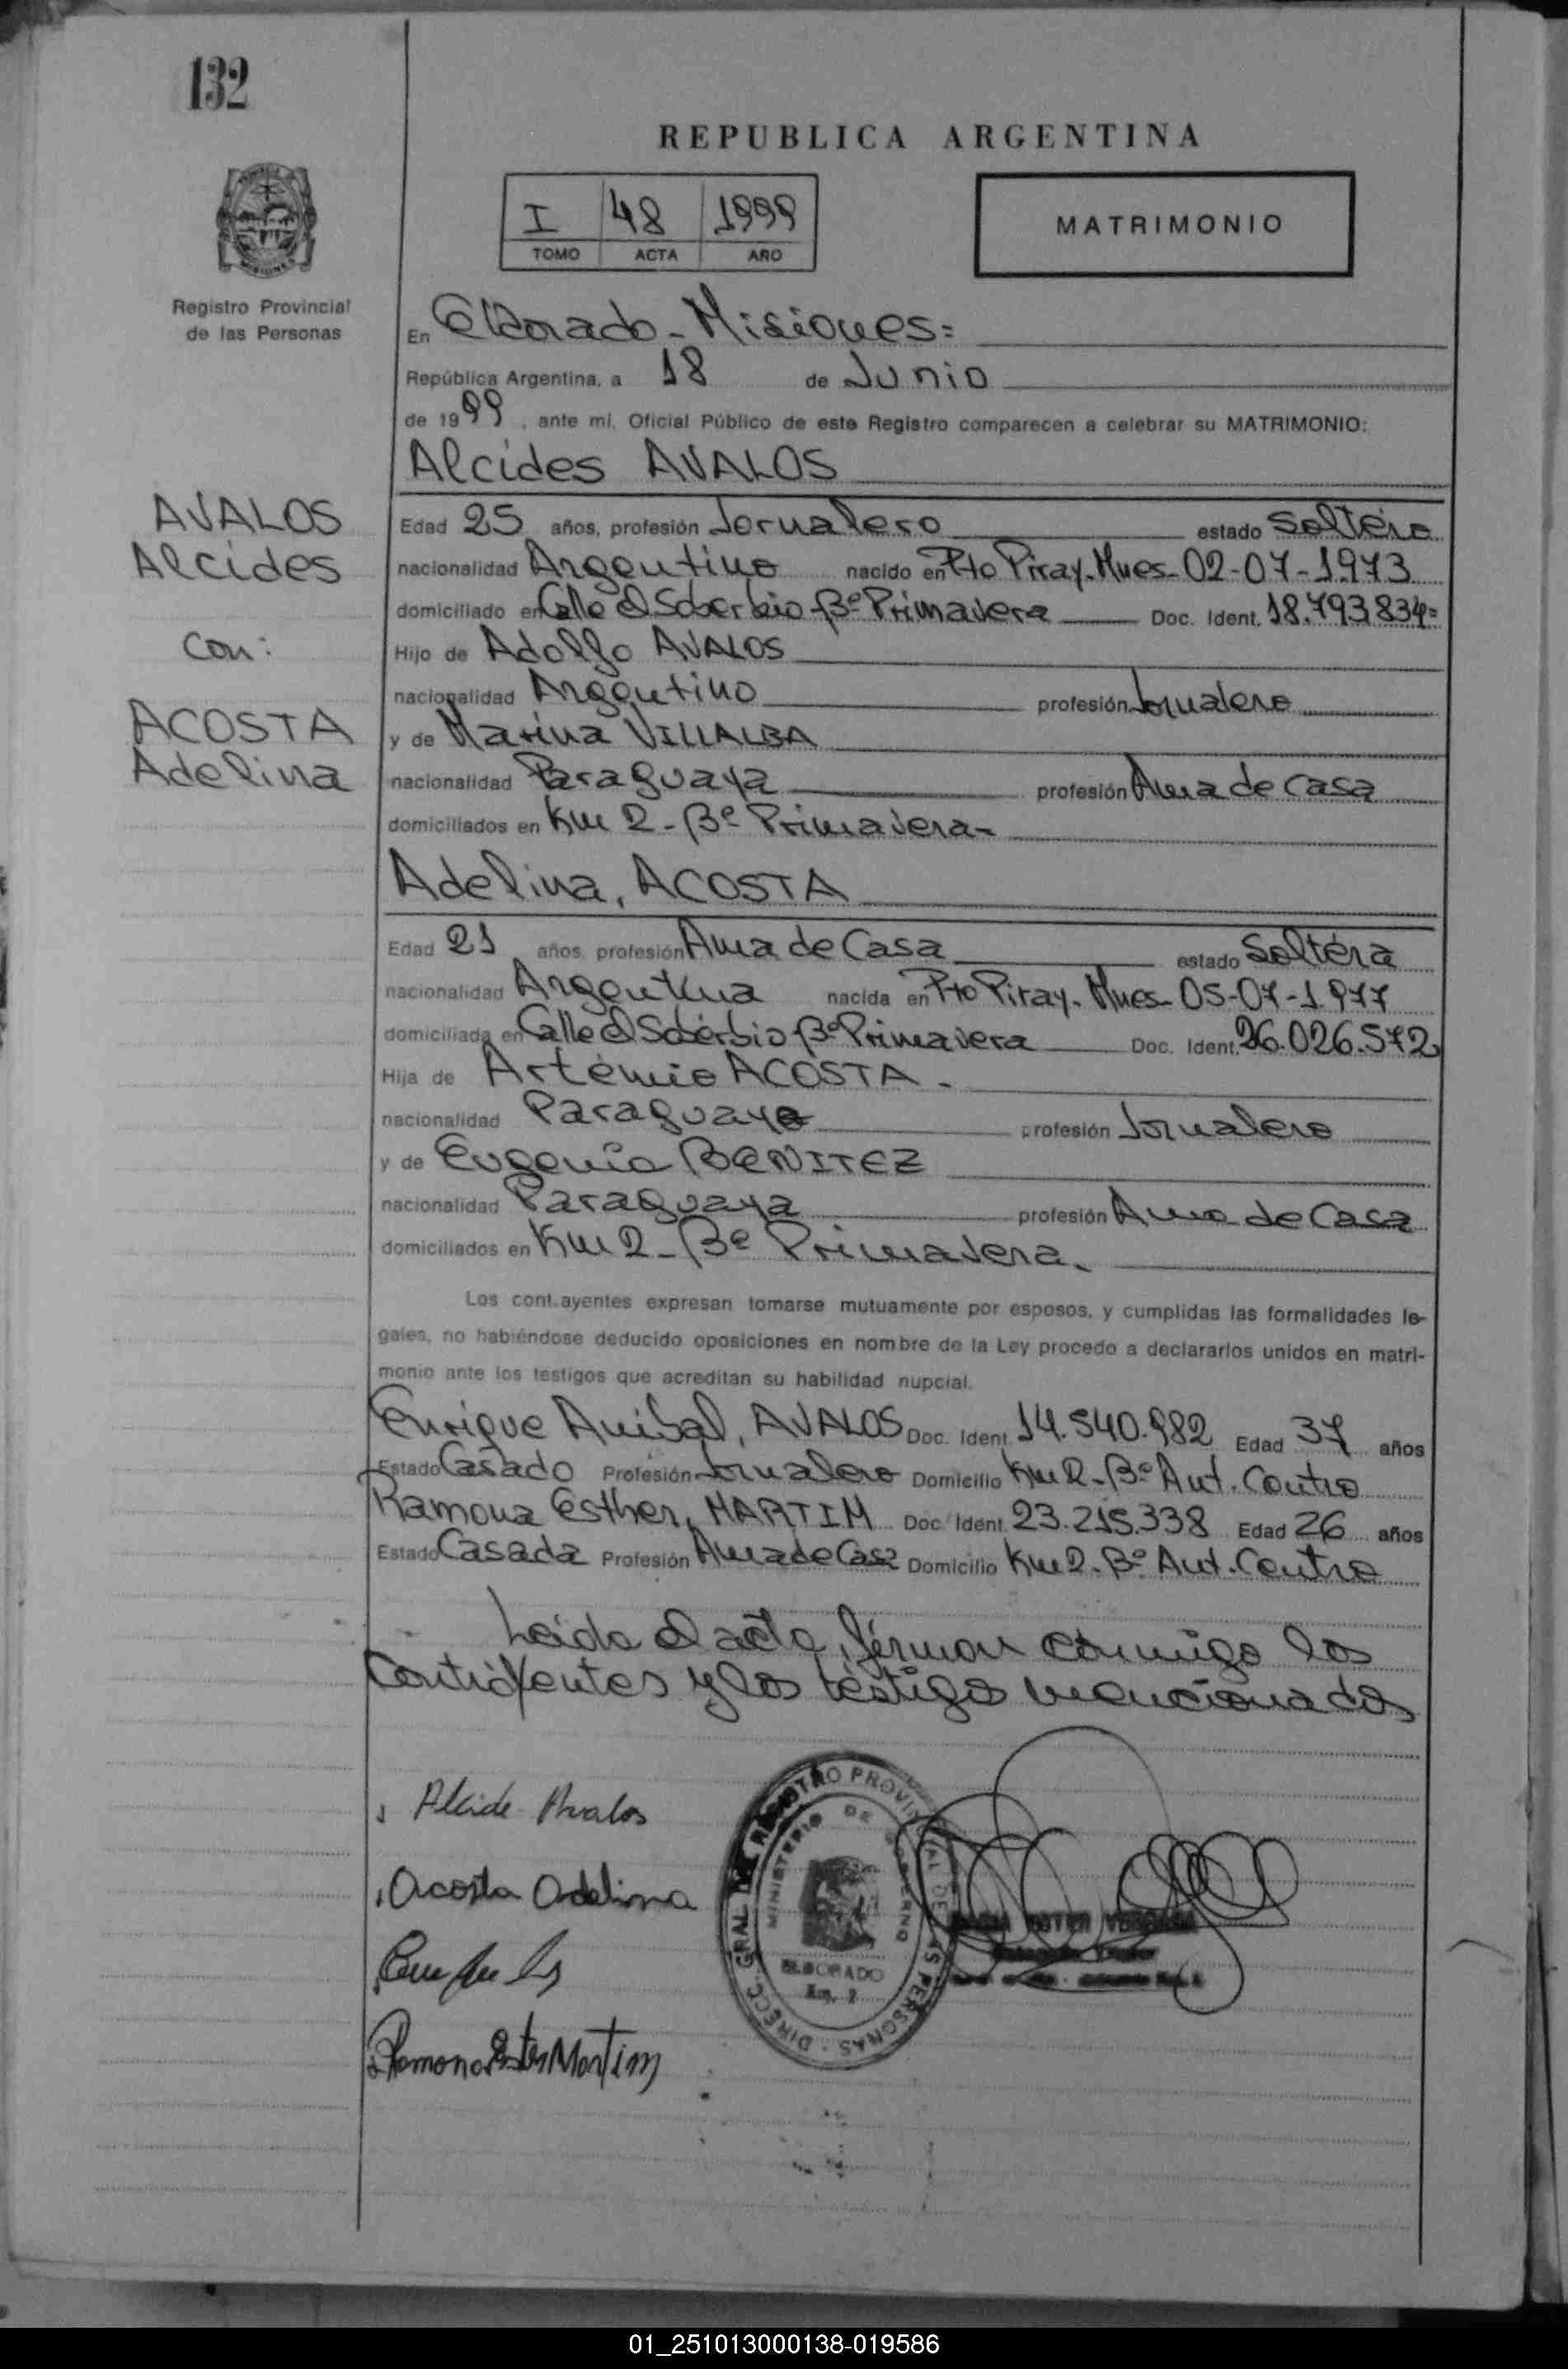 132
REPUBLICA ARGENTINA
I 48 1999
TOMO ACTA AÑO
MATRIMONIO
Registro Provincial
de las Personas
En Eldorado - Misiones=
República Argentina, a 18 de Junio
de 1999, ante mi, Oficial Público de este Registro comparecen a celebrar su MATRIMONIO:
Alcides AVALOS
AVALOS
Alcides
con:
ACOSTA
Adelina
Edad 25 años, profesión Jornalero estado Soltero
nacionalidad Argentino nacido en Pto Piray-Mnes-02-07-1973
domiciliado en Calle El Soberbio Bº Primavera Doc. Ident. 18.793834=
Hijo de Adolfo AVALOS
nacionalidad Argentino profesión Jornalero
y de Marina VILLALBA
nacionalidad Paraguaya profesión Ama de Casa
domiciliados en Km 2 - Bº Primavera-
Adelina, ACOSTA
Edad 21 años, profesión Ama de Casa estado Soltera
nacionalidad Argentina nacida en Pto Piray-Mnes-05-07-1977
domiciliada en Calle El Soberbio Bº Primavera Doc. Ident. 26.026.572
Hija de Artemio ACOSTA -
nacionalidad Paraguayo profesión Jornalero
y de Eugenia BENITEZ
nacionalidad Paraguaya profesión Ama de Casa
domiciliados en Km 2 - Bº Primavera.
Los contrayentes expresan tomarse mutuamente por esposos, y cumplidas las formalidades le-
gales, no habiéndose deducido oposiciones en nombre de la Ley procedo a declararlos unidos en matri-
monio ante los testigos que acreditan su habilidad nupcial.
Enrique Anibal, AVALOS Doc. Ident. 14.540.982 Edad 37 años
Estado Casado Profesión Jornalero Domicilio Km 2 - Bº Aut. Centro
Ramona Esther, MARTIM Doc. Ident. 23.215.338 Edad 26 años
Estado Casada Profesión Ama de Casa Domicilio Km 2 - Bº Aut. Centro
Leida el acta, firman conmigo los
Contrayentes y los testigos mencionados
Alcide Avalos
Acosta Adelina
Ramona Ester Martim
DIRECC. GRAL. DE REGISTRO PROVINCIAL DE LAS PERSONAS
MINISTERIO DE GOBIERNO
ELDORADO
Km. 2
01_251013000138-019586